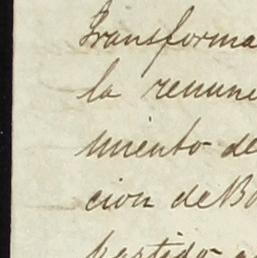 Transforma
la renun
miento de
cion de Bo
partido